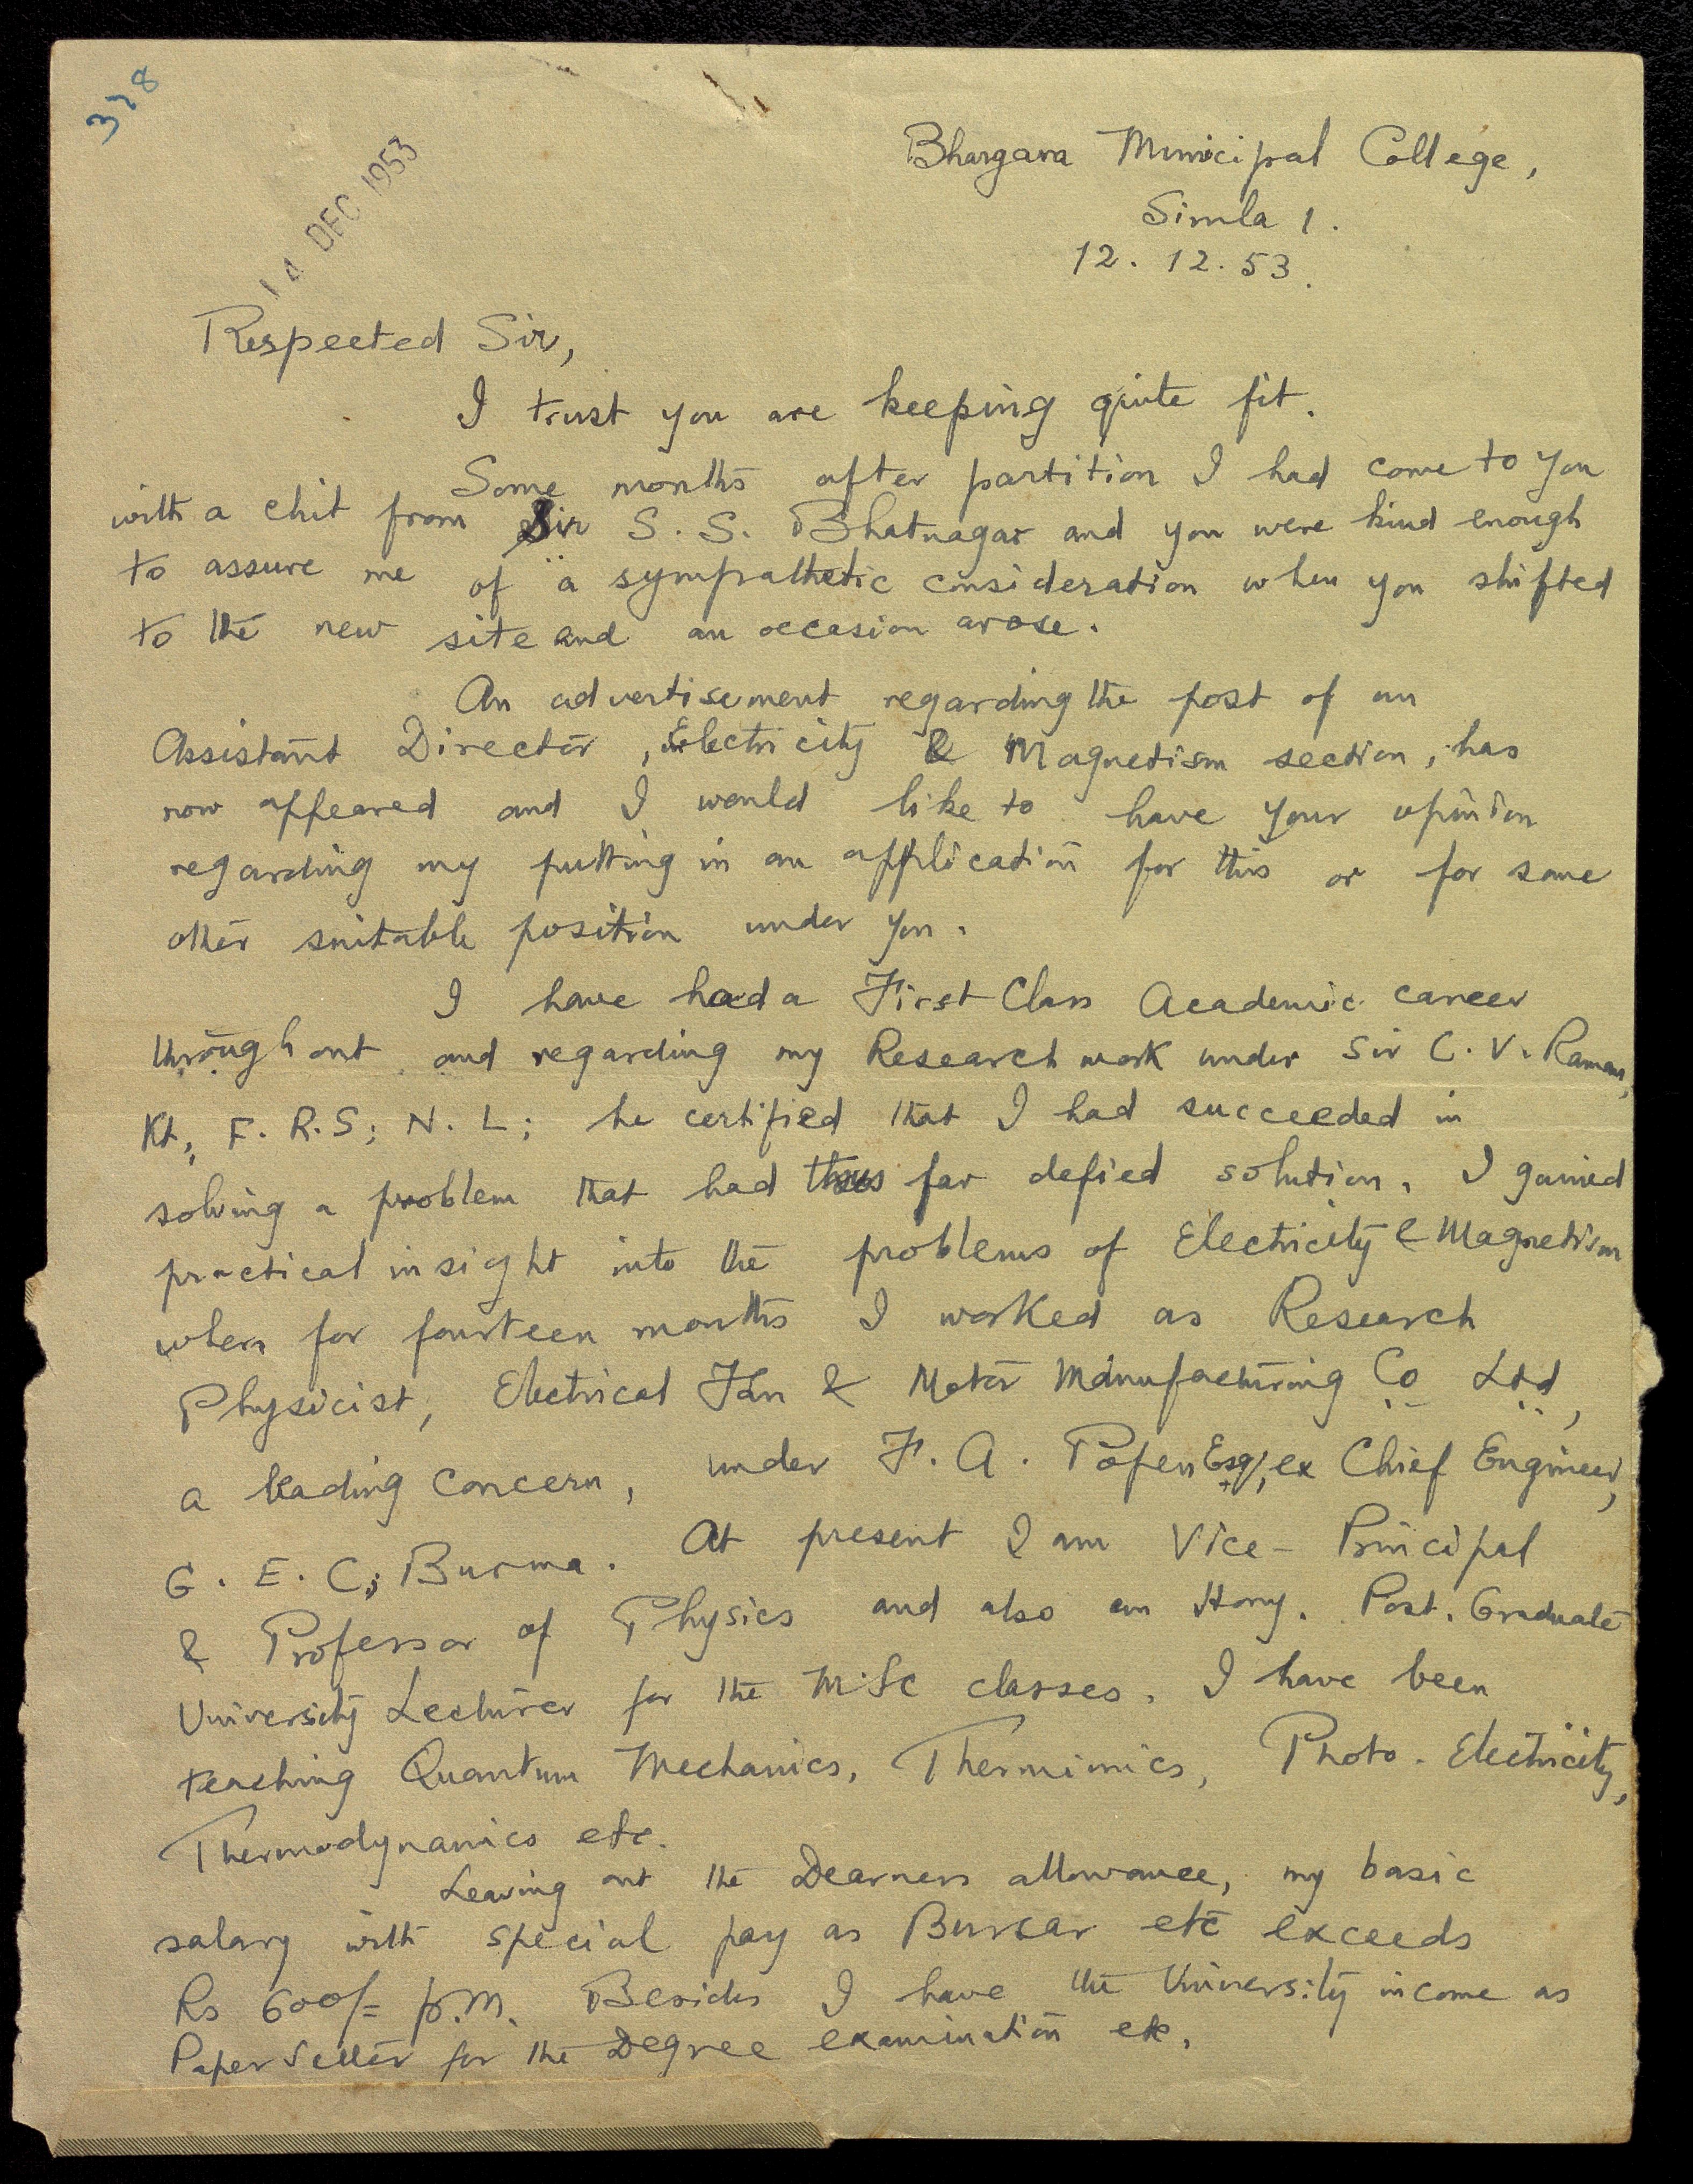 328
14 DEC 1953
Bhargava Municipal College,
Simla 1.
12. 12. 53.
Respected Sir,
I trust you are keeping quite fit.
Some months after partition I had come to you
with a chit from Sir S. S. Bhatnagar and you were kind enough
to assure me of a sympathetic consideration when you shifted
to the new site and an occasion arose.
An advertisement regarding the post of an
Assistant Director, Electricity & Magnetism section, has
now appeared and I would like to have your opinion
regarding my putting in an application for this or for some
other suitable position under you.
I have had a First Class Academic career
throughout and regarding my Research work under Sir C. V. Raman,
Kt, F. R. S; N. L; he certified that I had succeeded in
solving a problem that had thus far defied solution. I gained
practical insight into the problems of Electricity & Magnetism
when for fourteen months I worked as Research
Physicist, Electrical Fan & Motor Manufacturing Co Ltd,
a leading concern, under F. A. Papen Esq/, ex Chief Engineer,
G. E. C; Burma. At present I am Vice-Principal
& Professor of Physics and also an Hony. Post. Graduate
University Lecturer for the M.Sc classes. I have been
teaching Quantum Mechanics, Thermimics, Photo-Electricity,
Thermodynamics etc.
Leaving out the Dearness allowance, my basic
salary with special pay as Bursar etc exceeds
Rs 600/= p.m. Besides I have the University income as
Paper Setter for the Degree examination etc.